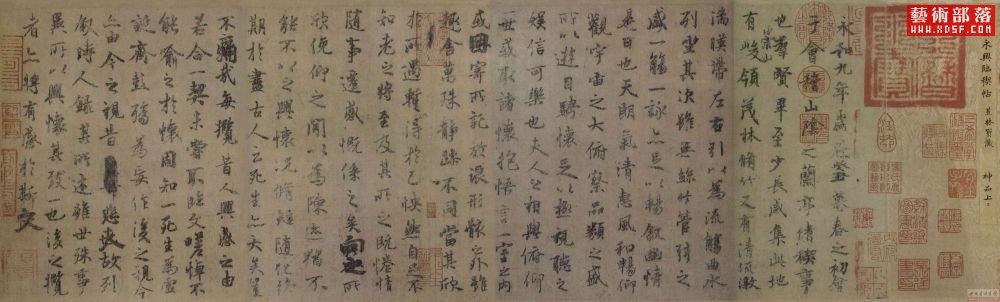 藝術部落
www.25F.com
永興臨禊帖
神品上上
永和九年歲在癸丑暮春之初會
于會稽山陰之蘭亭脩稧事
也羣賢畢至少長咸集此地
有崇山峻領茂林脩竹又有清流激
湍暎帶左右引以為流觴曲水
列坐其次雖無絲竹管弦之
盛一觴一詠亦足以暢敘幽情
是日也天朗氣清惠風和暢仰
觀宇宙之大俯察品類之盛
所以遊目騁懷足以極視聽之
娛信可樂也夫人之相與俯仰
一世或取諸懷抱悟言一室之內
或因寄所託放浪形骸之外雖
趣舍萬殊靜躁不同當其欣
於所遇暫得於己怏然自足不
知老之將至及其所之既惓情
隨事遷感慨係之矣向之所
欣俛仰之閒以為陳迹猶不
能不以之興懷況脩短隨化終
期於盡古人云死生亦大矣豈
不痛哉每攬昔人興感之由
若合一契未嘗不臨文嗟悼不
能喻之於懷固知一死生為虛
誕齊彭殤為妄作後之視今
亦由今之視昔悲夫故列
敘時人錄其所述雖世殊事
異所以興懷其致一也後之攬
者亦將有感於斯文